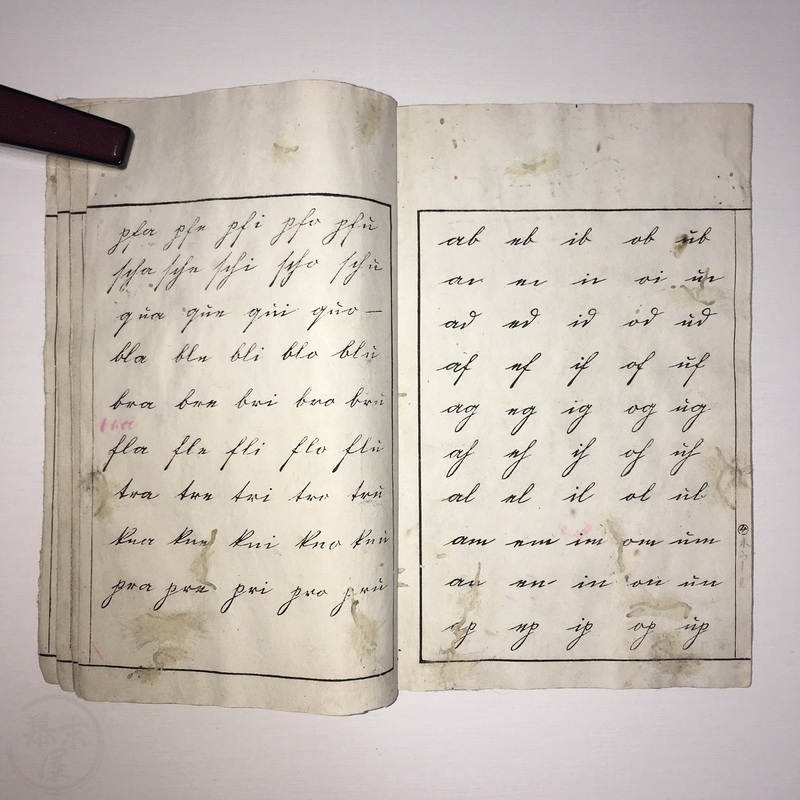 pfa pfe pfi pfo pfu
scha sche schi scho schu
qua que qui quo —
bla ble bli blo blu
bra bre bri bro bru
fla fle fli flo flu
tra tre tri tro tru
kna kne kni kno knu
pra pre pri pro pru
ab eb ib ob ub
ac ec ic oc uc
ad ed id od ud
af ef if of uf
ag eg ig og ug
ah eh ih oh uh
al el il ol ul
am em im om um
an en in on un
ap ep ip op up
幕末屋